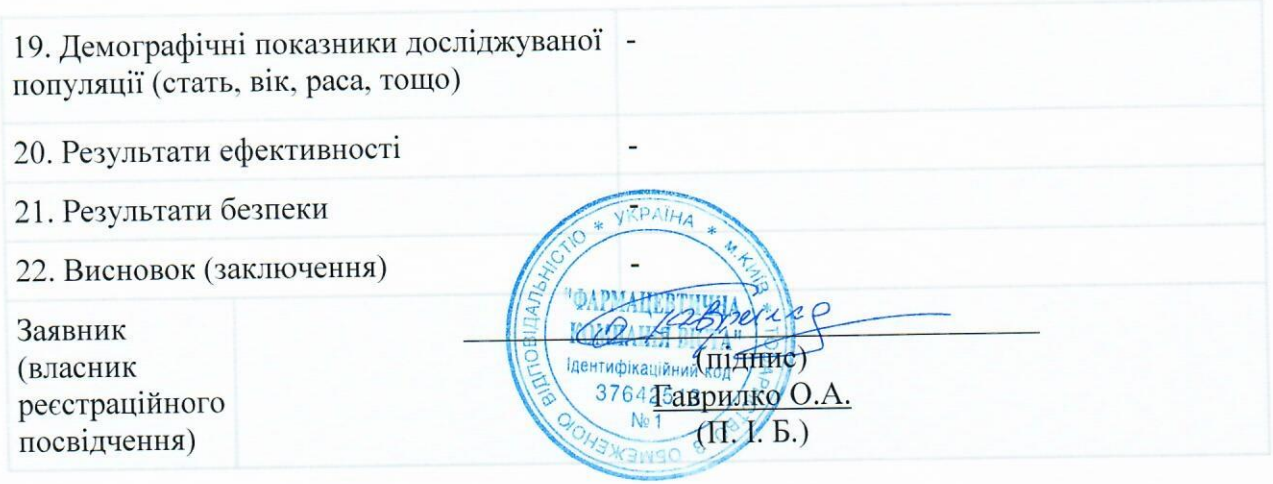 19. Демографічні показники досліджуваної -
популяції (стать, вік, раса, тощо)
20. Результати ефективності -
21. Результати безпеки -
22. Висновок (заключення) -
Заявник
(власник
реєстраційного
посвідчення)
(підпис)
Гаврилко О.А.
(П. І. Б.)
* УКРАЇНА * м.КИЇВ * ТОВАРИСТВО З ОБМЕЖЕНОЮ ВІДПОВІДАЛЬНІСТЮ
"ФАРМАЦЕВТИЧНА
КОМПАНІЯ
Ідентифікаційний код
№ 1